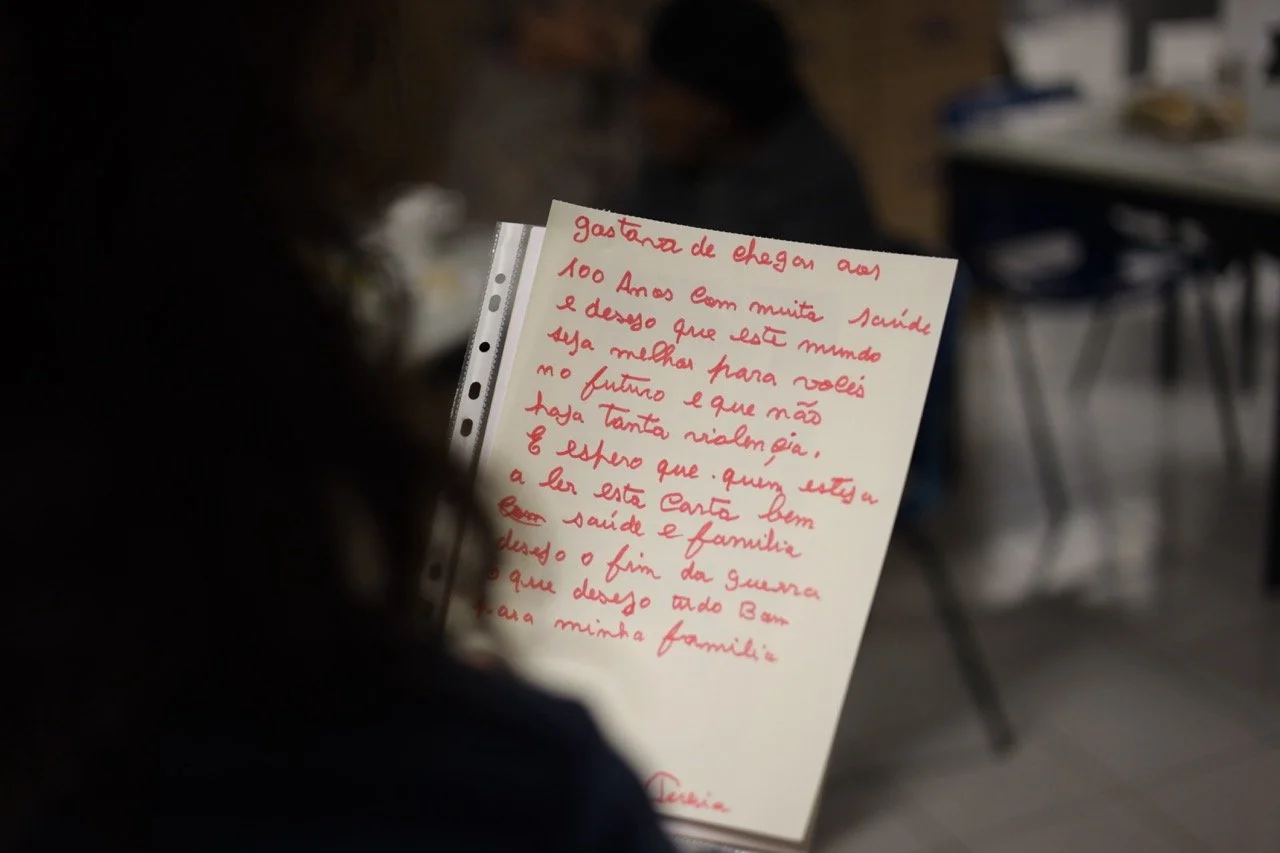 gostava de chegar aos
100 Anos Com muita saúde
e desejo que este mundo
seja melhor para voces
no futuro e que não
haja tanta violençia.
E espero que quem esteja
a ler esta Carta bem
saúde e familia
desejo o fim da guerra
o que desejo tudo Bom
para minha familia